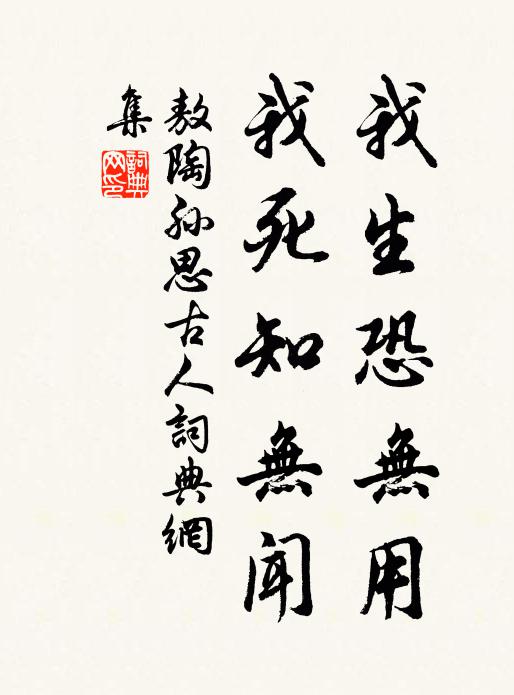 我生恐無用
我死知無聞
敖陶孫思古人詞典網
集
詞典
网印